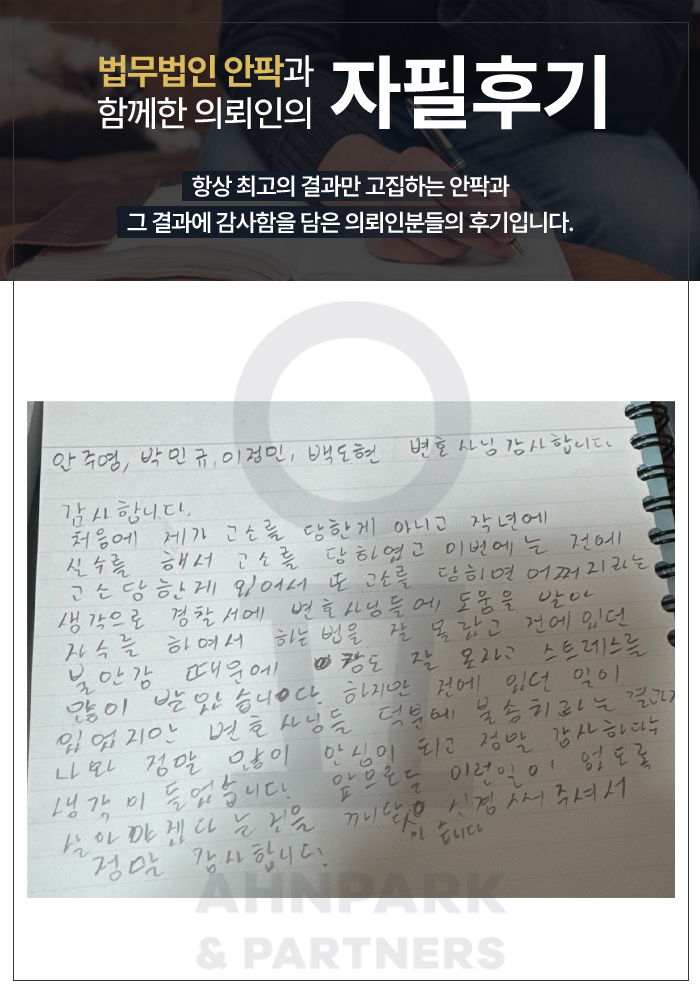 법무법인 안팍과
함께한 의뢰인의
자필후기
항상 최고의 결과만 고집하는 안팍과
그 결과에 감사함을 담은 의뢰인분들의 후기입니다.
안주영, 박민규, 이정민, 백도현 변호사님 감사합니다.
감사합니다.
처음에 제가 고소를 당한게 아니고 작년에
실수를 해서 고소를 당하였고 이번에는 전에
고소당한게 있어서 또 고소를 당하면 어쩌지라는
생각으로 경찰서에 변호사님들에 도움을 받아
자수를 하여서 하는법을 잘 몰랐고 전에있던
불안감 때문에 잠도 잘 못자고 스트레스를
많이 받았습니다. 하지만 전에 있던 일이
있었지만 변호사님들 덕분에 불송치라는 결과가
나와 정말 많이 안심이 되고 정말 감사하다는
생각이 들었습니다. 앞으로는 이런일이 없도록
살아야겠다는 것을 깨닳 신경써주셔서
습니다
정말 감사합니다.
AHNPARK
& PARTNERS